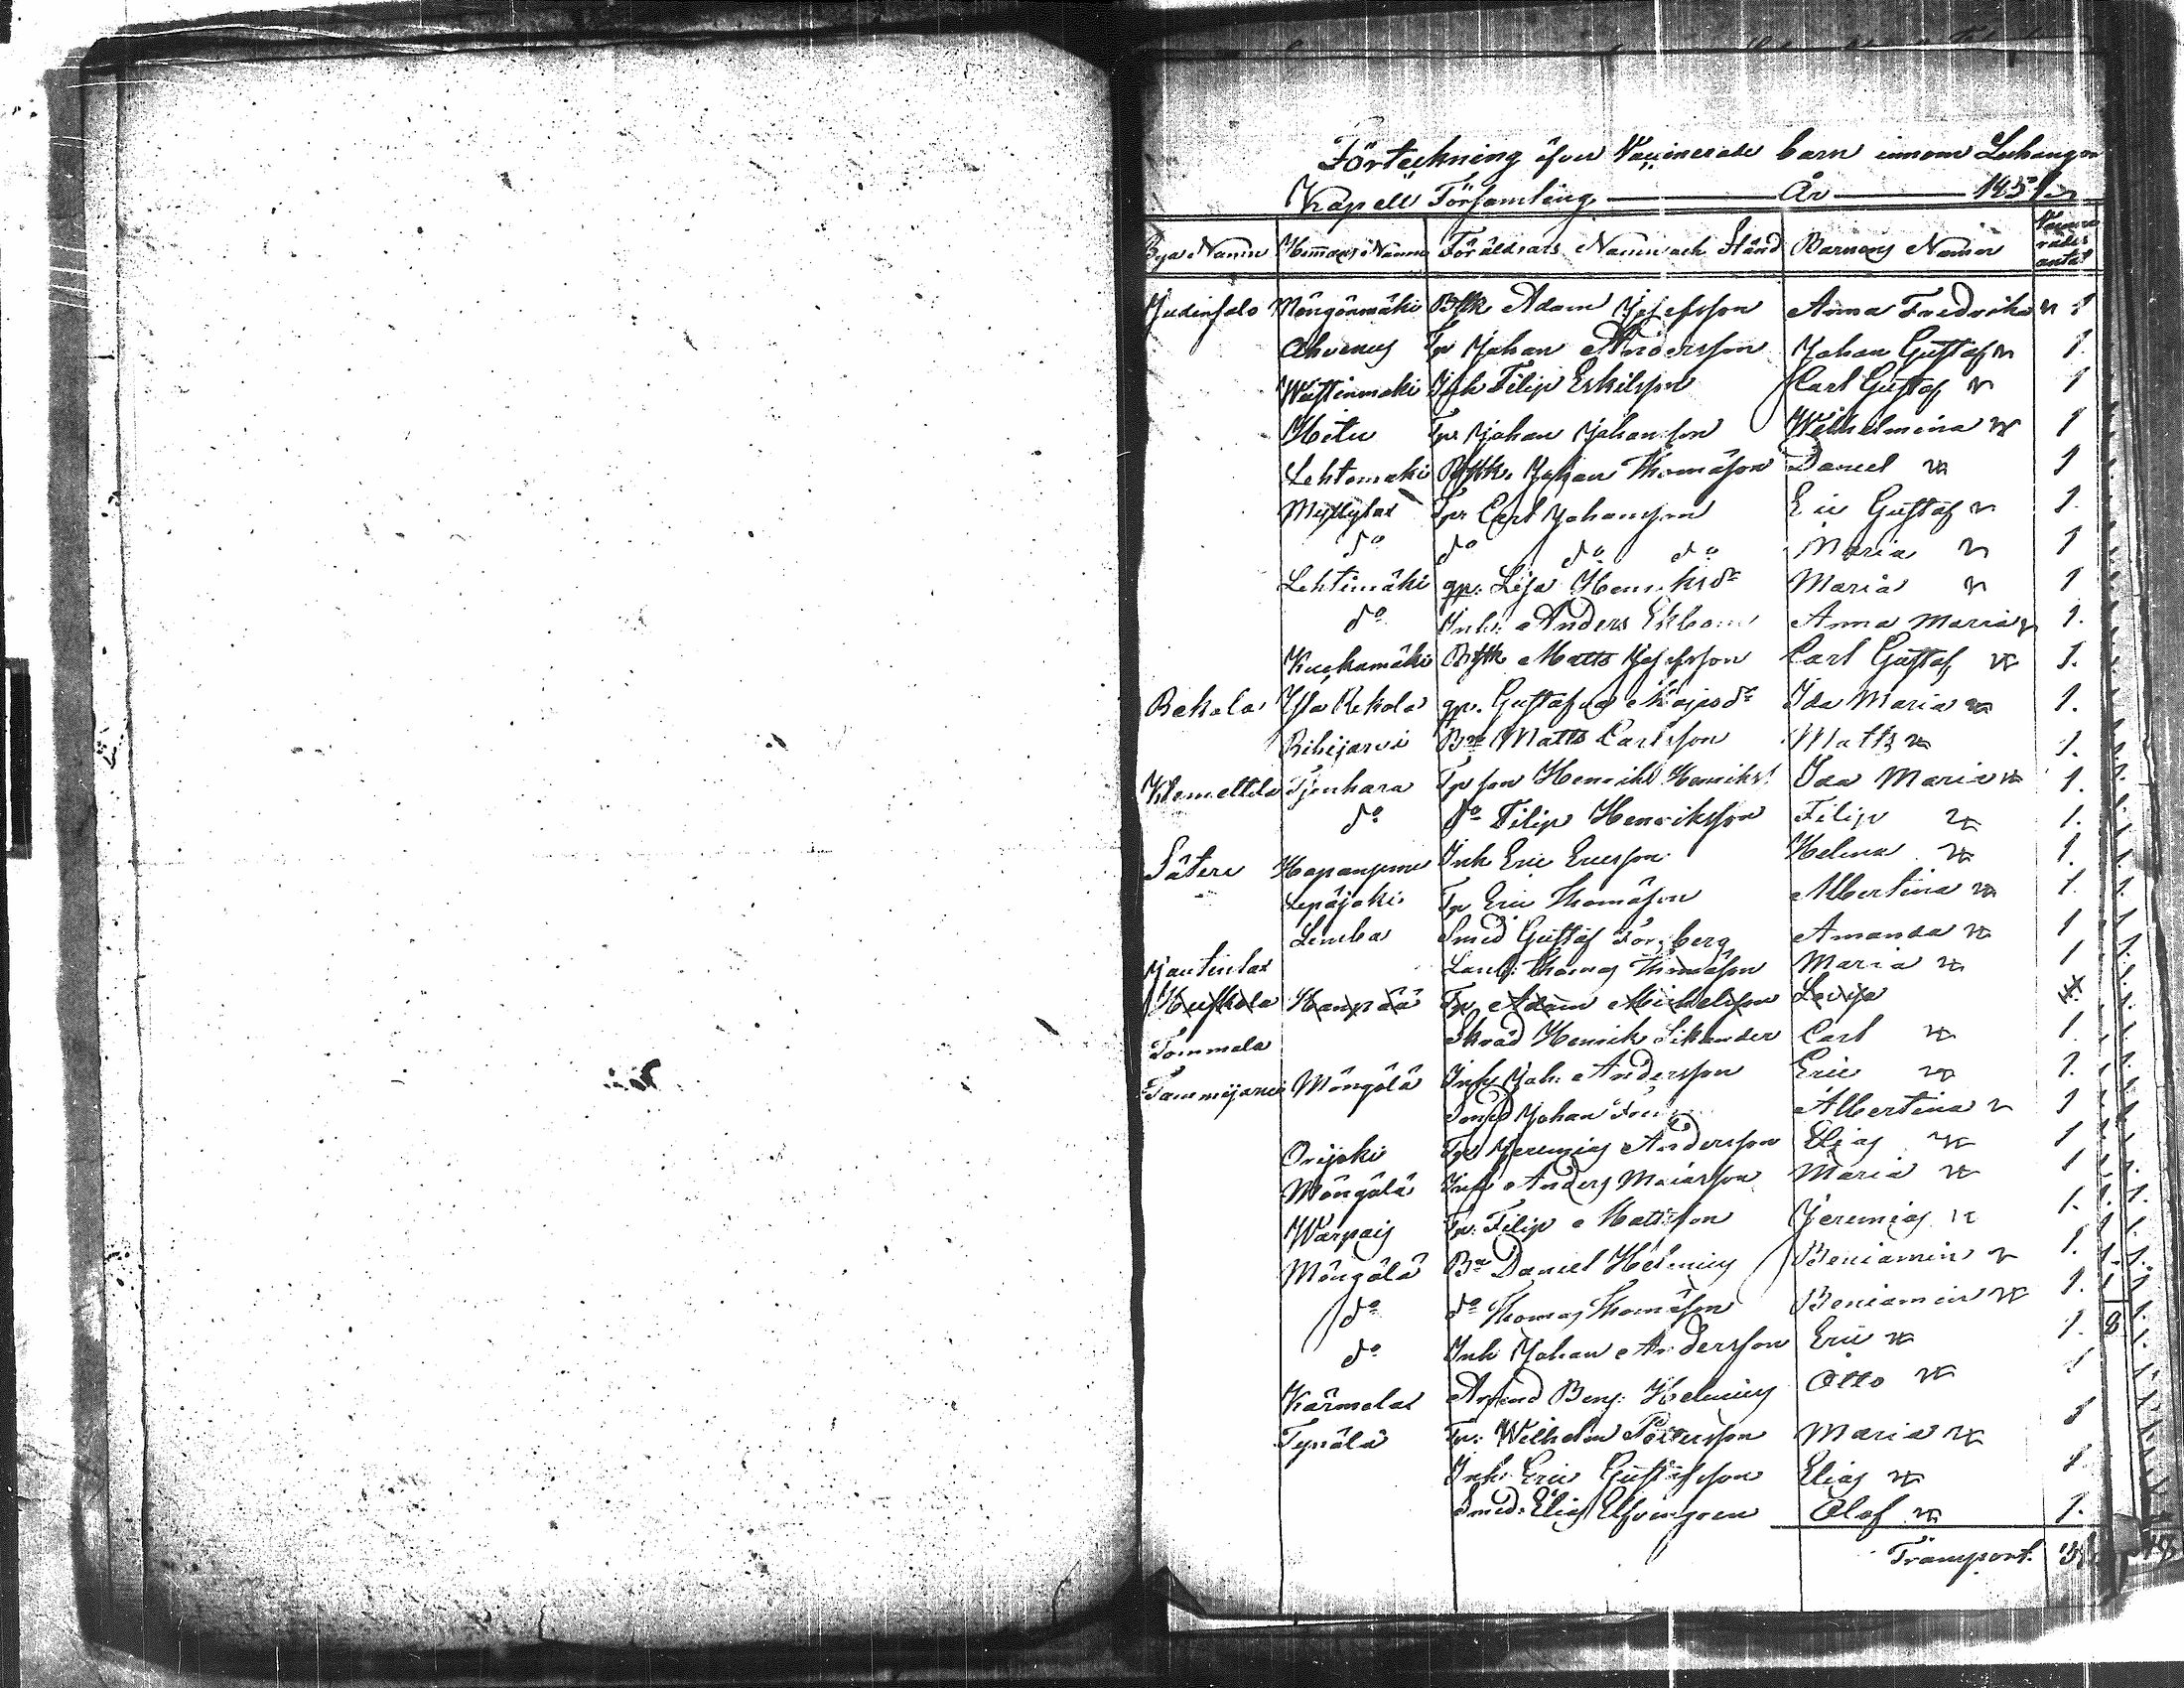 Förteckning öfver Vaccinerade barn innom Luhango
Kapell Församling År 185
Bya Namn Hemans Namn Föräldrars Namn och Stånd Barnens Namn Vaccine rades antal
Judinsalo Möngönmäki Btfk Adam Josefsson Anna Fredrika 1
Ahvenus Tp Johan Andersson Johan Gustaf 1.
Wästinmäki Inh Filip Eskilsson Carl Gustaf 1
Hietu Tpr Johan Johansson Wilhelmina 1
Lehtomaki Btfk. Johan Thomasson Daniel 1
Myllylax Tpr Carl Johansson Eric Gustaf 1.
do do do do Maria 1
Lehtimäki qp. Lisa Henriksdr Maria 1
do Inh: Anders Ekbom Anna Maria 1.
Kuckamäki Btfk Matts Josefsson Carl Gustaf 1.
Rekola Yla Rekola qp. Gustafva Majasdr Ida Maria 1.
Rihijarvi Bn Matts Carlsson Matts 1.
Klemettila Tjenhara Tp son Henrik Henrikss Ida Maria 1.
do do Filip Henriksson Filip 1.
Säteri Hapanjemi Inh Eric Ericsson Helena 1.
Lepäjoki Tp Eric Thomasson Albertina 1.
Lemba Smed Gustaf Forsberg Amanda 1
Jautinlax Lanb: Thomas Thomasson Maria 1
Huskola Hanpää Tp Adam Michelsson Lovisa
Tommola Skräd Henrik Sikander Carl 1.
Tammijarvi Möngölä Inh Joh: Andersson Eric 1.
Smed Johan Albertina 1
Orijoki Tpr Jeremias Andersson Elias 1
Möngölä Inh Anders Maiasson Maria 1
Warpais Tp: Filip Mattsson Jeremias 1.
Möngölä Bn Daniel Helenius Beniamin 1.
do do Thomas Thomasson Beniamin 1.
do Inh Johan Andersson Eric 1.
Kärmelax Arrend Benj: Helenius Otto 1
Typälä Tp: Wilhelm Pettersson Maria 1
Inh: Eric Gustafsson Elias 1
Smed: Elias Elfvengren Olof 1.
Transport. 31